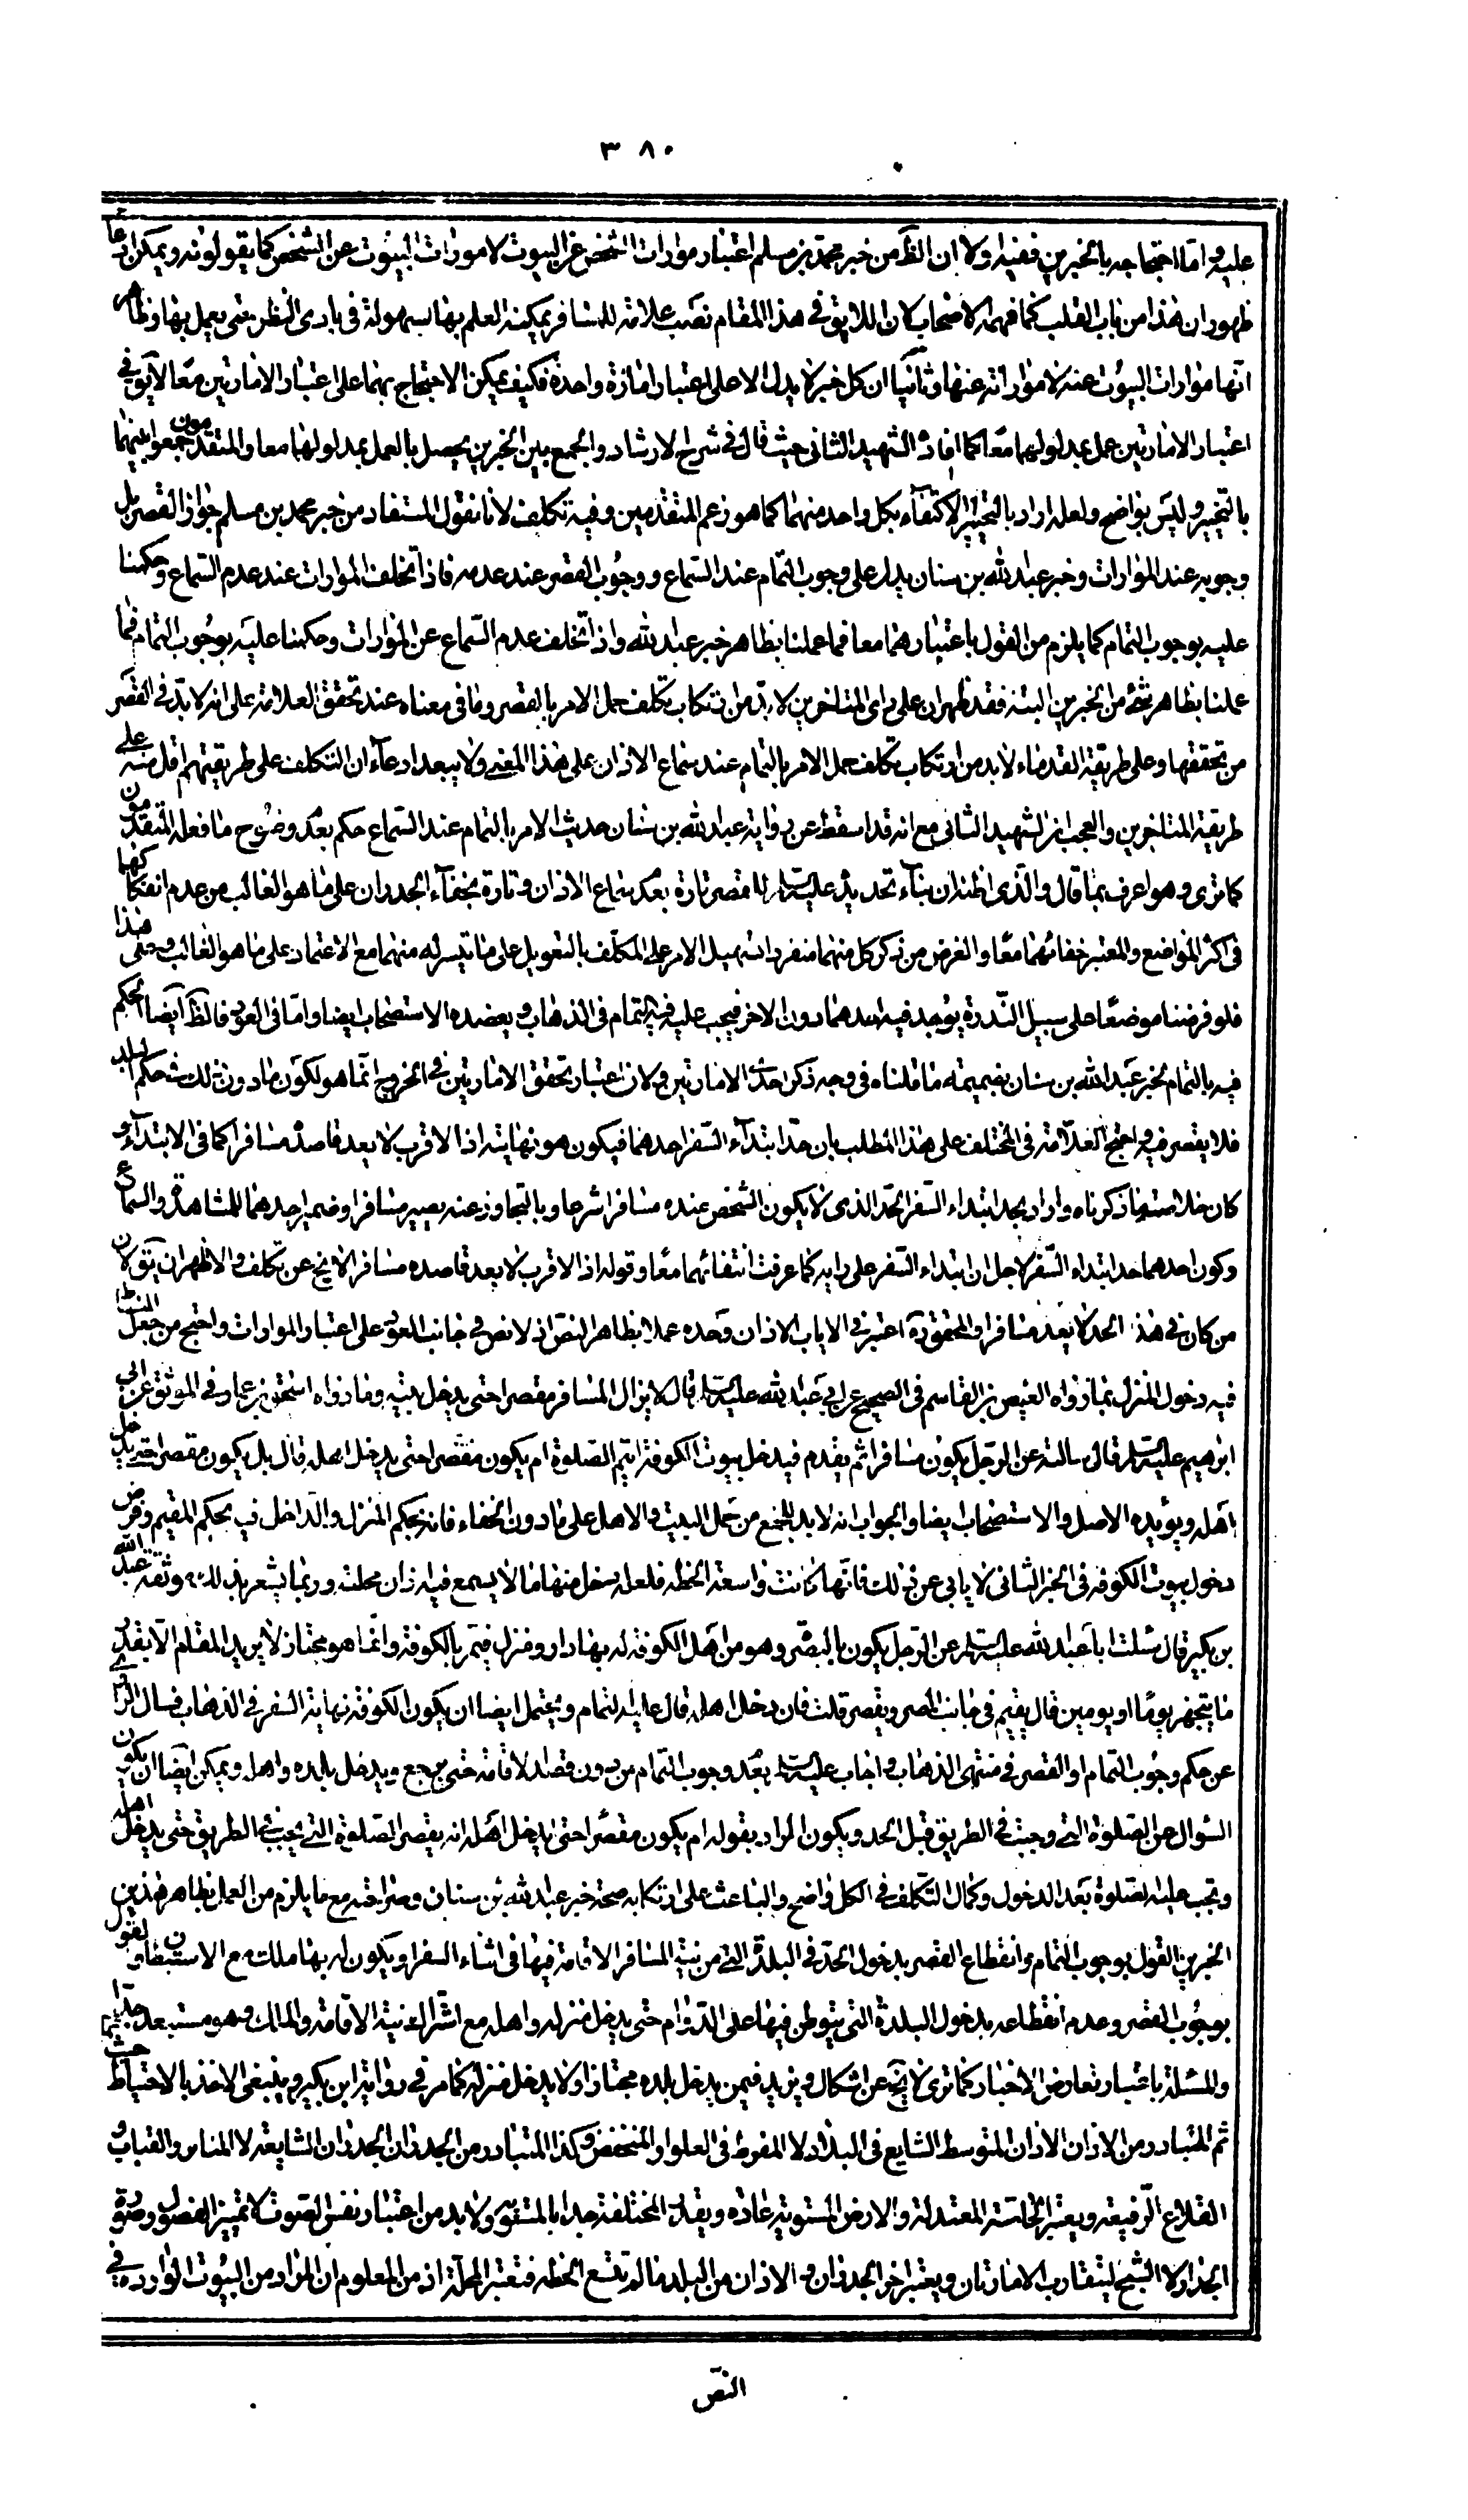 ٣٨٠
عليه و اما احتجاجه بالخبرين ففيه اولا ان الظ من خبر محمد بن مسلم اعتبار موارات الشخص عن البيوت لا موارات البيوت عن الشخص كما يقولونه و يمكن ادعا
ظهور ان هذا من باب القلب كما فهمه الاصحاب لان اللايق في هذا المقام نصب علامة للمسافر يمكنه العلم بها بسهولة في بادى النظر حتى يعمل بها و ظاهر
انها موارات البيوت عنه لا مواراته عنها و ثانيا ان كل خبر لا يدل الا على اعتبار امارة واحدة فكيف يمكن الاحتجاج بهما على اعتبار الامارتين معا لا يق في
اعتبار الامارتين عمل بمدلوليهما معا كما افاده الشهيد الثانى حيث قال في شرح الارشاد و الجمع بين الخبرين يحصل بالعمل بمدلولهما معا و المتقدمون جمعوا بينهما
بالتخيير و ليس بواضح و لعله اراد بالتخيير الاكتفاء بكل واحد منهما كما هو زعم المتقدمين و فيه تكلف لانا نقول المستفاد من خبر محمد بن مسلم جواز القصر بل
وجوبه عند الموارات و خبر عبد الله بن سنان يدل على وجوب التمام عند السماع و وجوب القصر عند عدمه فاذا تخلف الموارات عند عدم السماع و حكمنا
عليه بوجوب التمام كما يلزم من القول باعتبارهما معا فما عملنا بظاهر خبر عبد الله و اذا تخلف عدم السماع عن الموارات و حكمنا عليه بوجوب التمام فما
عملنا بظاهر شئ من الخبرين البتة فقد ظهر ان على راى المتاخرين لابد من ارتكاب تكلف حمل الامر بالقصر و ما في معناه عند تحقق العلامة على انه لابد في القصر
من تحققها و على طريقة القدماء لابد من ارتكاب تكلف حمل الامر بالتمام عند سماع الاذان على هذا المعنى و لا يبعد ادعاء ان التكلف على طريقتهم اقل منه على
طريقة المتاخرين و العجب من الشهيد الثانى مع انه قد اسقط عن رواية عبد الله بن سنان حديث الامر بالتمام عند السماع حكم بعدم وضوح ما فعله المتقدمون
كما ترى و هو اعرف بما قال و الذى اظنه ان بناء تحديده عليه السلام للقصر تارة بعدم سماع الاذان و تارة بخفاء الجدران على ما هو الغالب من عدم انفكاكهما
في اكثر المواضع و المعتبر خفائهما معا و الغرض من ذكر كل منهما منفردا تسهيل الامر على المكلف بالتعويل على ما تيسر له منهما مع الاعتماد على ما هو الغالب و على هذا
فلو فرضنا موضعا على سبيل الندرة يوجد فيه احدهما دون الاخر فيجب عليه فيه التمام في الذهاب و يعضده الاستصحاب ايضا و اما في العود فالظ ايضا الحكم
فيه بالتمام لخبر عبد الله بن سنان بضميمة ما قلناه في وجه ذكر احدى الامارتين و لان اعتبار تحقق الامارتين في الخروج انما هو لكون ما دون ذلك في حكم البلد
فلا يقصر فيه و احتج العلامة في المختلف على هذا المطلب بان حد ابتداء السفر احدهما فيكون هو نهايته اذ الاقرب لا يعد قاصده مسافرا كما في الابتداء و
كان خلاصته ما ذكرناه و اراد بحد ابتداء السفر الحد الذى لا يكون الشخص عنده مسافرا شرعا و بالتجاوز عنه يصير مسافرا و ضمير احدهما للمشاهدة و السماع
و كون احدهما حد ابتداء السفر لاجل ان ابتداء السفر على رايه كما عرفت انتفائهما معا و قوله اذ الاقرب لا يعد قاصده مسافرا لا يخ عن تكلف و الاظهر ان يق لان
من كان في هذا الحد لا يعد مسافرا و المحقق ره اعتبر في الاياب الاذان وحده عملا بظاهر النص اذ لا نص في جانب العود على اعتبار الموارات و احتج من جعل المناط
فيه دخول المنزل بما رواه العيص بن القاسم في الصحيح عن ابي عبد الله عليه السلام قال لا يزال المسافر مقصرا حتى يدخل بيته و ما رواه اسحق بن عمار في الموثق عن ابى
ابرهيم عليه السلام قال سالته عن الرجل يكون مسافرا ثم يقدم فيدخل بيوت الكوفة ايتم الصلوة ام يكون مقصرا حتى يدخل اهله قال بل يكون مقصرا حتى يدخل
اهله و يؤيده الاصل و الاستصحاب ايضا و الجواب انه لابد للجمع من حمل البيت و الاهل على ما دون الخفاء فانه بحكم المنزل و الداخل فيه بحكم المقيم و فرض
دخول بيوت الكوفة في الخبر الثانى لا يابى عن ذلك فانها كانت واسعة الخطه فلعله يدخل منها ما لا يسمع فيه اذان محلته و ربما يشعر بذلك موثقة عبد الله
بن بكير قال سئلت ابا عبد الله عليه السلام عن الرجل يكون بالبصرة و هو من اهل الكوفة له بها دار و منزل فيمر بالكوفة و انما هو مجتاز لا يريد المقام الا بقدر
ما يتجهز يوما او يومين قال يقيم في جانب المصر و يقصر قلت فان دخل اهله قال عليه التمام و يحتمل ايضا ان يكون الكوفة نهاية السفر في الذهاب فسال الراوى
عن حكم وجوب التمام او القصر في منتهى الذهاب و اجاب عليه السلام بعدم وجوب التمام من دون قصد الاقامة حتى يرجع و يدخل بلده و اهله و يمكن ايضا ان يكون
السؤال عن الصلوة التى وجبت في الطريق قبل الحد و يكون المراد بقوله ام يكون مقصرا حتى يدخل اهله انه يقصر الصلوة التى يجب في الطريق حتى يدخل اهله
و تجب عليه الصلوة بعد الدخول و كمال التكلف في الكل واضح و الباعث على ارتكابه صحة خبر عبد الله بن سنان و صراحته مع ما يلزم من العمل بظاهر هذين
الخبرين القول بوجوب التمام و انقطاع القصر بدخول الحد في البلدة التى من نية المسافر الاقامة فيها في اثناء السفر او يكون له بها ملك مع الاستيطان و القول
بوجوب القصر و عدم انقطاعه بدخول البلدة التى يتوطن فيها على الدوام حتى يدخل منزله و اهله مع اشتراك نية الاقامة و الملك و هو مستبعد جدا
و المسئلة باعتبار تعارض الاخبار كما ترى لا يخ عن اشكال و يزيد فيمن يدخل بلده مجتازا و لا يدخل منزله كما مر في رواية ابن بكير و ينبغى الاخذ بالاحتياط
ثم المتبادر من الاذان الاذان المتوسط الشايع في البلاد لا المفرط في العلو او المنخفض و كذا المتبادر من الجدران الجدران الشايعة لا المنار و القباب و
القلاع الرفيعة و يعتبر الحاسة المعتدلة و الارض المستوية عادة و يقدر المختلفة جدا بالمستوى و لابد من اعتبار نفس الصوت لا تميز الفصول و صورة
الجدار لا الشبح ليتقارب الامارتان و يعتبر اخر الجدران و الاذان من البلد ما لم تتسع الخطه فتعتبر المحلة اذ من المعلوم ان المراد من البيوت الواردة في
النص